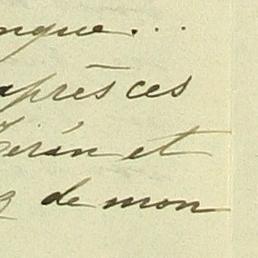 ngue...
après ces
Terán et
de mon